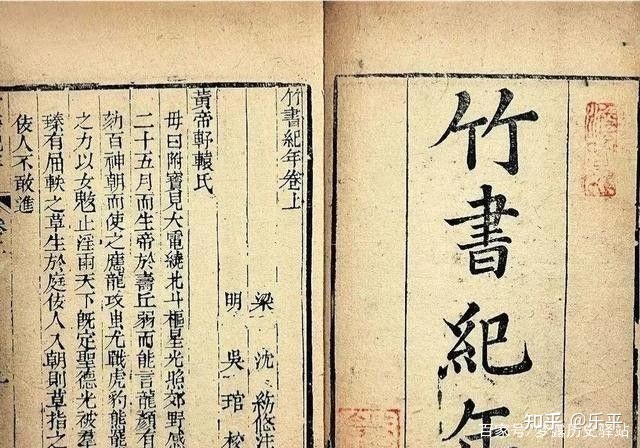 竹書紀年
竹書紀年卷上
梁 沈 約修注
明 吳 琯 校
黃帝軒轅氏
母曰附寶見大電繞北斗樞星光照郊野感
二十五月而生帝於壽丘弱而能言龍顏有
劾百神朝而使之應龍攻蚩尤戰虎豹熊羆
之力以女魃止淫雨天下既定聖德光被羣
臻有屈軼之草生於庭佞人入朝則草指之
佞人不敢進
知乎 @乐平
百家号 历史驿站